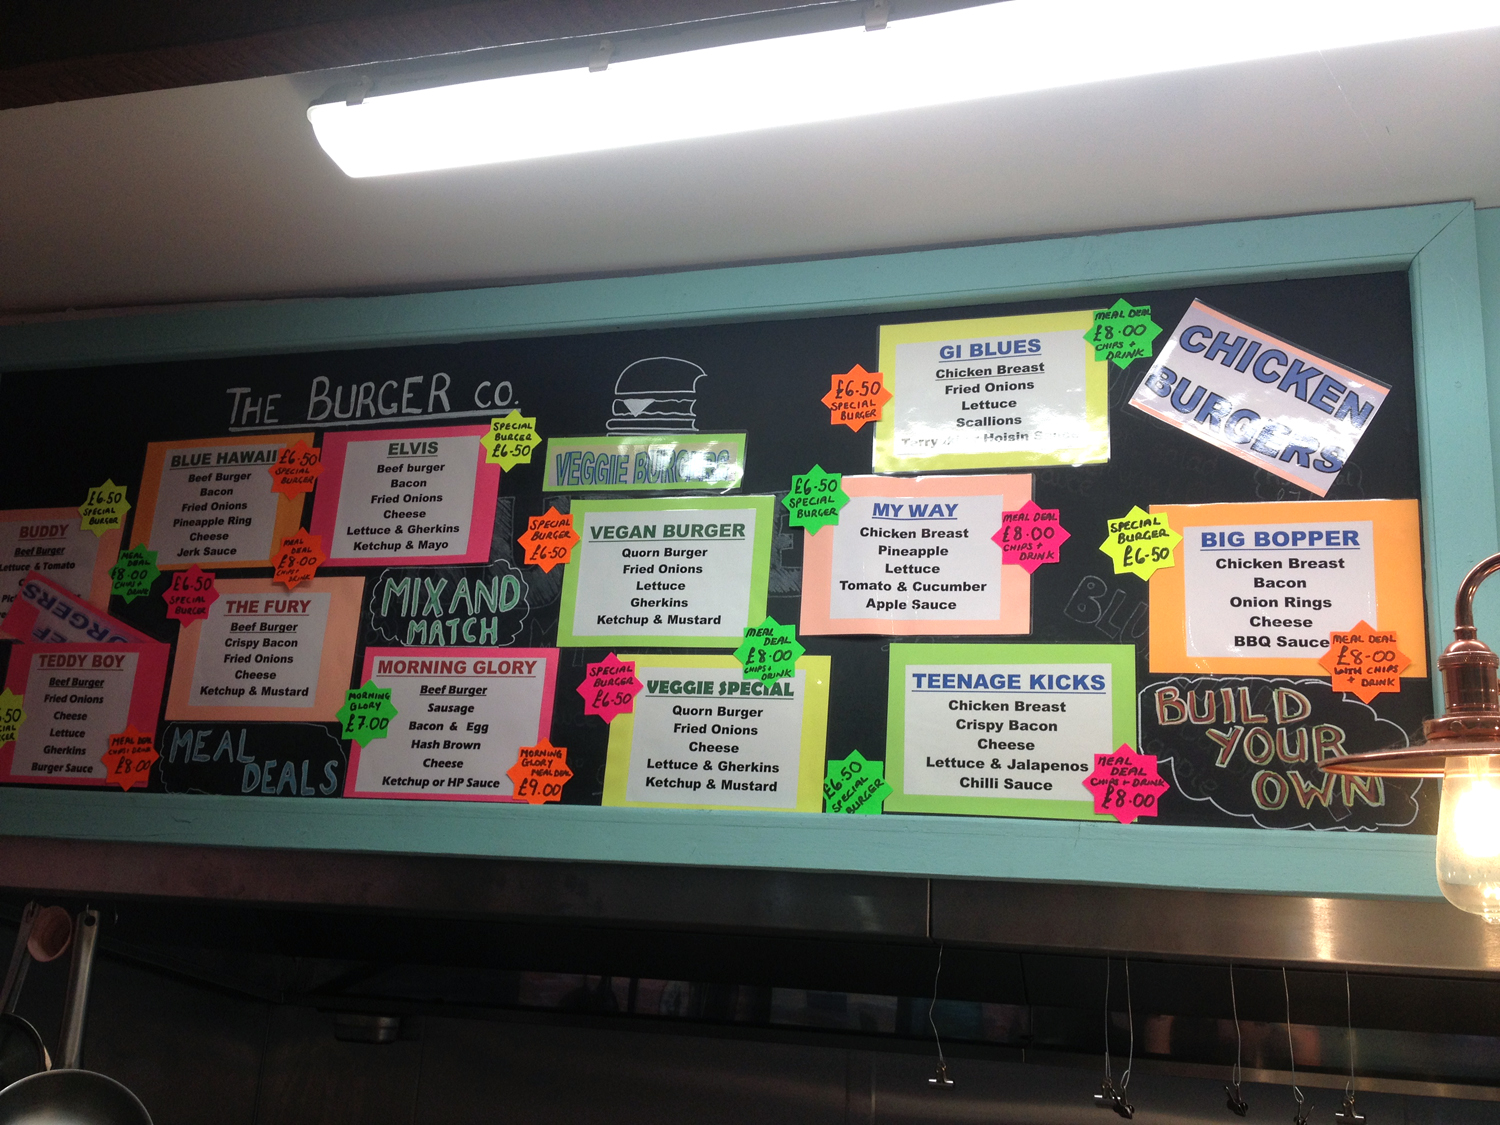 THE BURGER CO.
BUDDY
Beef Burger
Lettuce & Tomato
£6.50
SPECIAL
BURGER
BLUE HAWAII
Beef Burger
Bacon
Fried Onions
Pineapple Ring
Cheese
Jerk Sauce
£6.50
SPECIAL
BURGER
MEAL
DEAL
£8.00
CHIPS +
DRINK
ELVIS
Beef burger
Bacon
Fried Onions
Cheese
Lettuce & Gherkins
Ketchup & Mayo
SPECIAL
BURGER
£6.50
MEAL
DEAL
£8.00
CHIPS +
DRINK
TEDDY BOY
Beef Burger
Fried Onions
Cheese
Lettuce
Gherkins
Burger Sauce
MEAL DEAL
CHIPS + DRINK
£8.00
£6.50
SPECIAL
BURGER
THE FURY
Beef Burger
Crispy Bacon
Fried Onions
Cheese
Ketchup & Mustard
MEAL
DEALS
MIX AND
MATCH
MORNING GLORY
Beef Burger
Sausage
Bacon & Egg
Hash Brown
Cheese
Ketchup or HP Sauce
MORNING
GLORY
£7.00
MORNING
GLORY
MEAL DEAL
£9.00
VEGGIE BURGERS
VEGAN BURGER
Quorn Burger
Fried Onions
Lettuce
Gherkins
Ketchup & Mustard
SPECIAL
BURGER
£6.50
MEAL
DEAL
£8.00
CHIPS +
DRINK
VEGGIE SPECIAL
Quorn Burger
Fried Onions
Cheese
Lettuce & Gherkins
Ketchup & Mustard
SPECIAL
BURGER
£6.50
GI BLUES
Chicken Breast
Fried Onions
Lettuce
Scallions
Hoisin
£6.50
SPECIAL
BURGER
MEAL DEAL
£8.00
CHIPS +
DRINK
CHICKEN
BURGERS
MY WAY
Chicken Breast
Pineapple
Lettuce
Tomato & Cucumber
Apple Sauce
£6.50
SPECIAL
BURGER
MEAL DEAL
£8.00
CHIPS +
DRINK
TEENAGE KICKS
Chicken Breast
Crispy Bacon
Cheese
Lettuce & Jalapenos
Chilli Sauce
£6.50
SPECIAL
BURGER
MEAL
DEAL
CHIPS + DRINK
£8.00
BIG BOPPER
Chicken Breast
Bacon
Onion Rings
Cheese
BBQ Sauce
SPECIAL
BURGER
£6.50
MEAL DEAL
£8-00
WITH CHIPS
+ DRINK
BUILD
YOUR
OWN